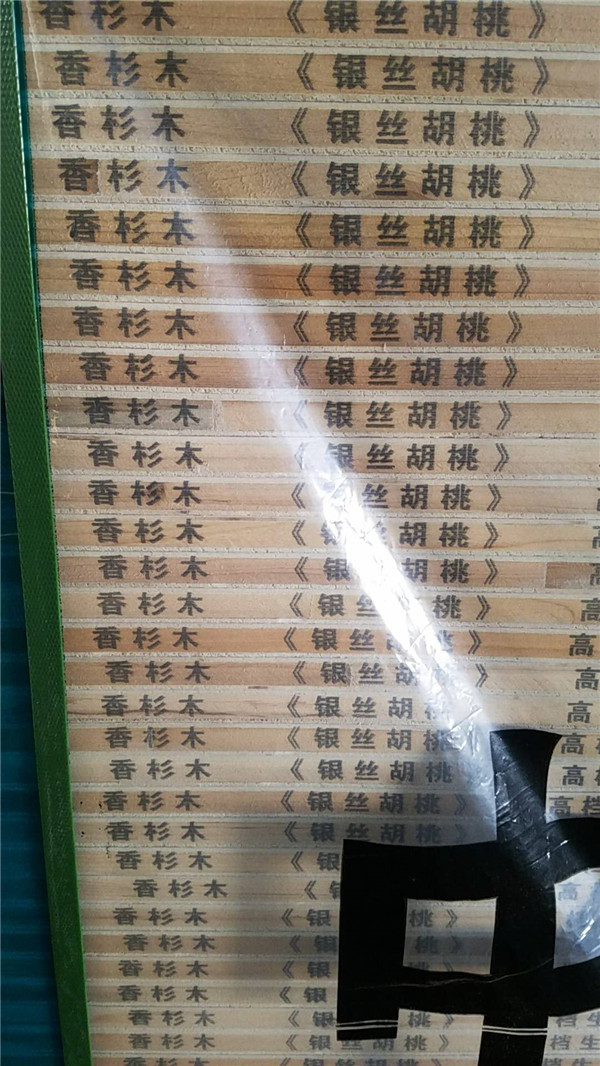 香杉木 《银丝胡桃》
香杉木 《银丝胡桃》
香杉木 《银丝胡桃》
香杉木 《银丝胡桃》
香杉木 《银丝胡桃》
香杉木 《银丝胡桃》
香杉木 《银丝胡桃》
香杉木 《银丝胡桃》
香杉木 《银丝胡桃》
香杉木 《银丝胡桃》
香杉木 《丝胡桃》
香杉木 《银丝胡桃》
香杉木 《银丝胡桃》
香杉木 《银丝胡桃》 高
香杉木 《银丝胡桃》 高
香杉木 《银丝胡桃》 高
香杉木 《银丝胡桃 高
香杉木 《银丝胡桃 高档
香杉木 《银丝胡桃 高档
香杉木 《银丝胡桃》 高档
香杉木 《银丝胡桃
香杉木 《银
香杉木 《 高
香杉木 《银 桃》
香杉木 《银 桃
香杉木 《银 桃》
香杉木 《银
香杉木 《银 桃》 档生
香杉木 《银丝胡桃》 档生
香杉木 《银丝胡桃》